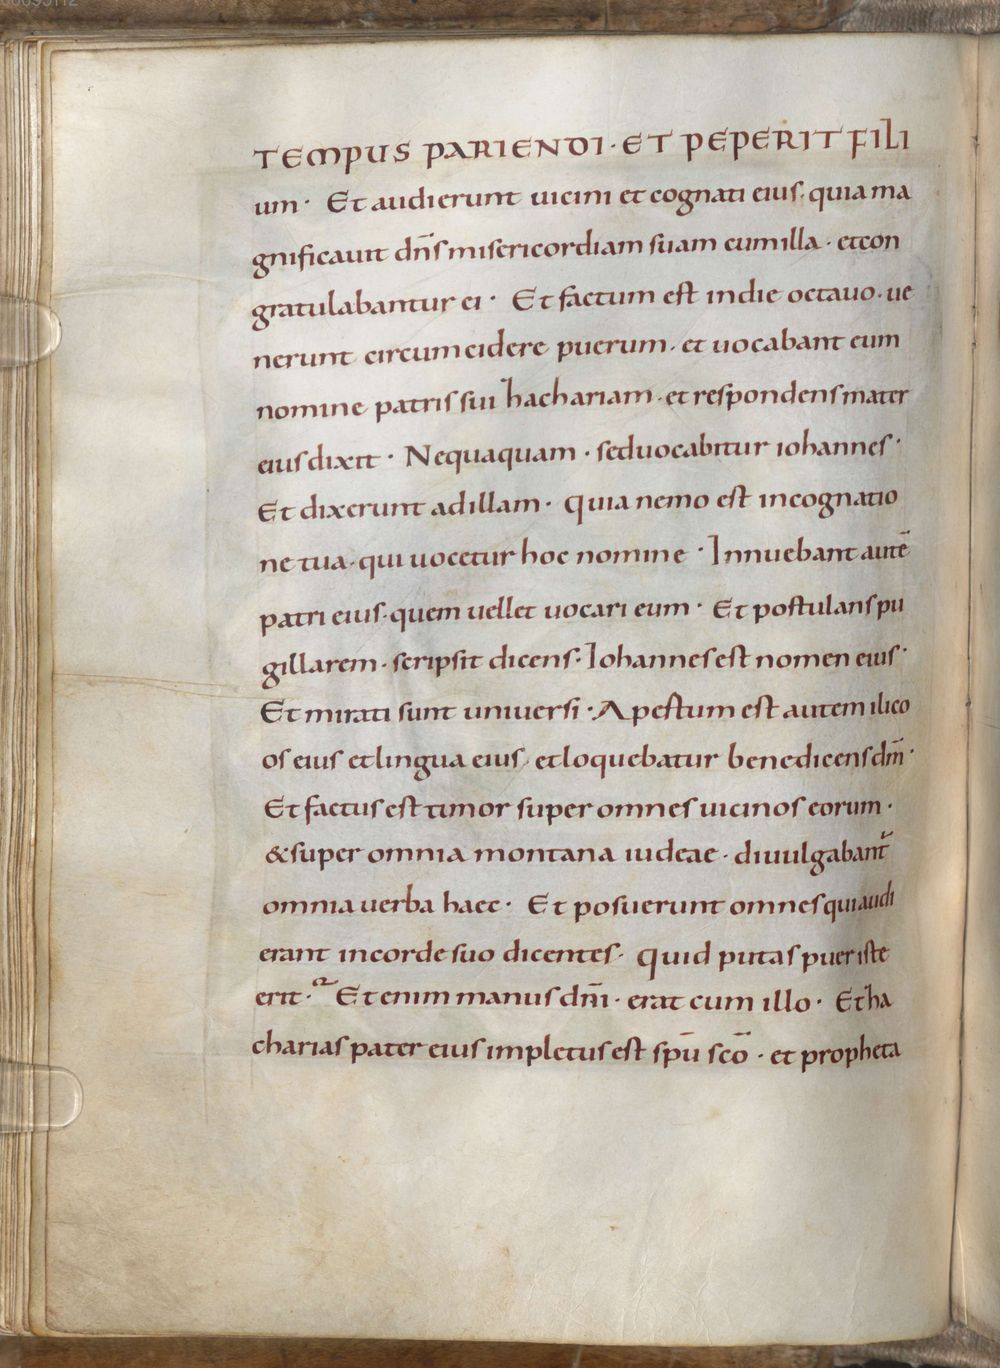 TEMPUS PARIENDI · ET PEPERIT FILI
um · Et audierunt uicini et cognati eius · quia ma
gnificauit dn̄s misericordiam suam cum illa · et con
gratulabantur ei · Et factum est in die octauo · ue
nerunt circumcidere puerum · et uocabant eum
nomine patris sui hachariam · et respondens mater
eius dixit · Nequaquam · sed uocabitur iohannes ·
Et dixerunt ad illam · Quia nemo est in cognatio
ne tua · qui uocetur hoc nomine · Innuebant autē
patri eius · quem uellet uocari eum · Et postulans pu
gillarem · scripsit dicens · Iohannes est nomen eius ·
Et mirati sunt uniuersi · Apestum est autem ilico
os eius et lingua eius · et loquebatur benedicens dm̄ ·
Et factus est timor super omnes uicinos eorum ·
& super omnia montana iudeae · diuulgabant᷑
omnia uerba haec · Et posuerunt omnes qui audi
erant in corde suo dicentes · Quid putas puer iste
erit · Et enim manus dm̄i · erat cum illo · Et ha
charias pater eius impletus est spū scō · et propheta